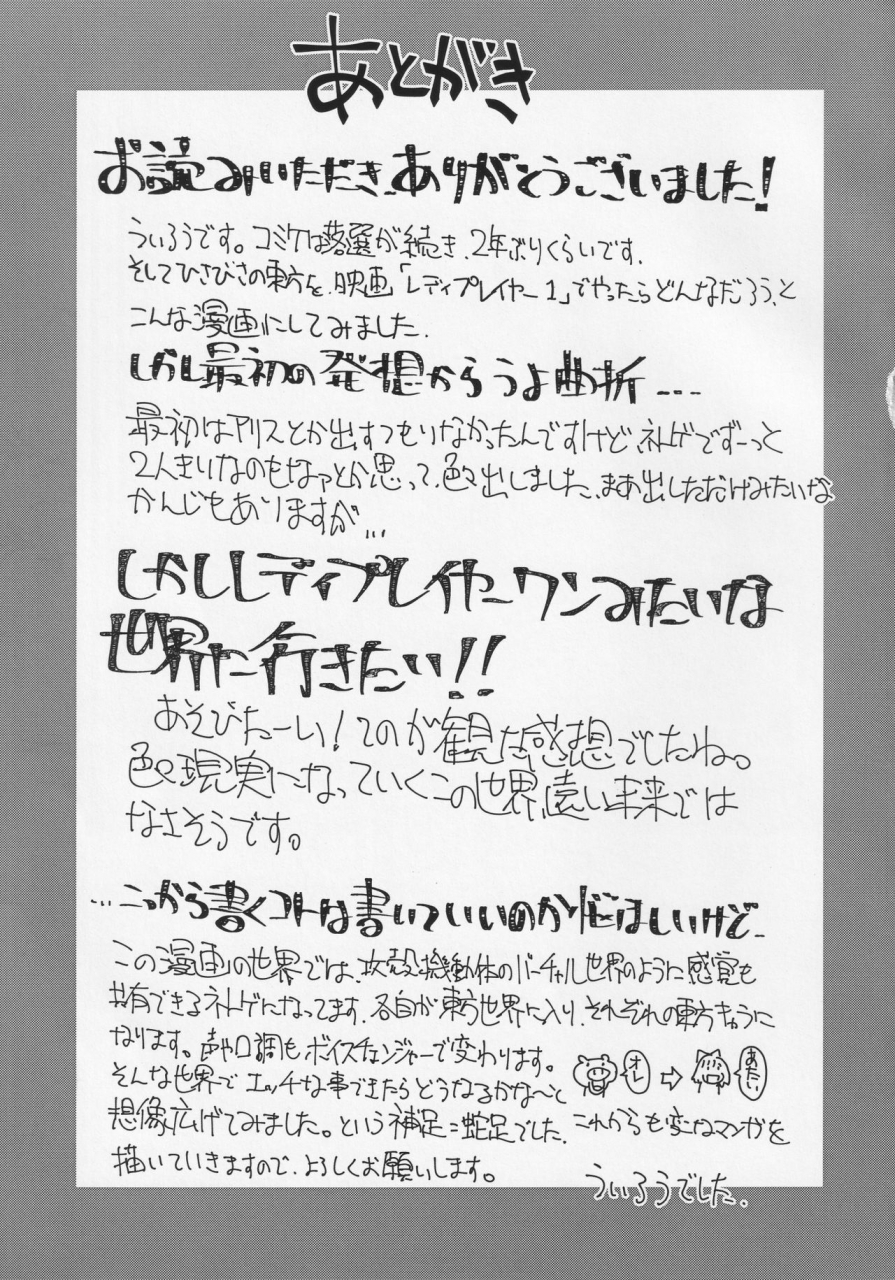 あとがき
お読みいただき、ありがとうございました!
ういろうです。コミケは落選が続き、2年ぶりくらいです。
そしてひさびさの東方を、映画「レディプレイヤー1」でやったらどんなだろう、と
こんな漫画にしてみました。
しかし最初の発想からうよ曲折....
最初はアリスとか出すつもりなかったんですけど、ネトゲでずーっと
2人きりなのもなァとか思って、色々出しました、まあ出しただけみたいな
かんじもありますが...
しかしレディプレイヤーワンみたいな
世界に行きたい!!
あそびたーい!てのが観た感想でしたね。
色々現実になっていくこの世界、遠い未来では
なさそうです。
...こっから書くコトは書いていいのか悩ましいけど、
この漫画の世界では、攻殻機動体のバーチャル世界のように感覚も
共有できるネトゲになってます、各自が東方世界に入り、それぞれの東方キャラに
なります。声や口調もボイスチェンジャーで変わります。
オレ
⇨
あたい
そんな世界でエッチな事できたらどうなるかな〜と
想像広げてみました。という補足=蛇足でした、これからも変なマンガを
描いていきますので、よろしくお願いします。
ういろうでした。